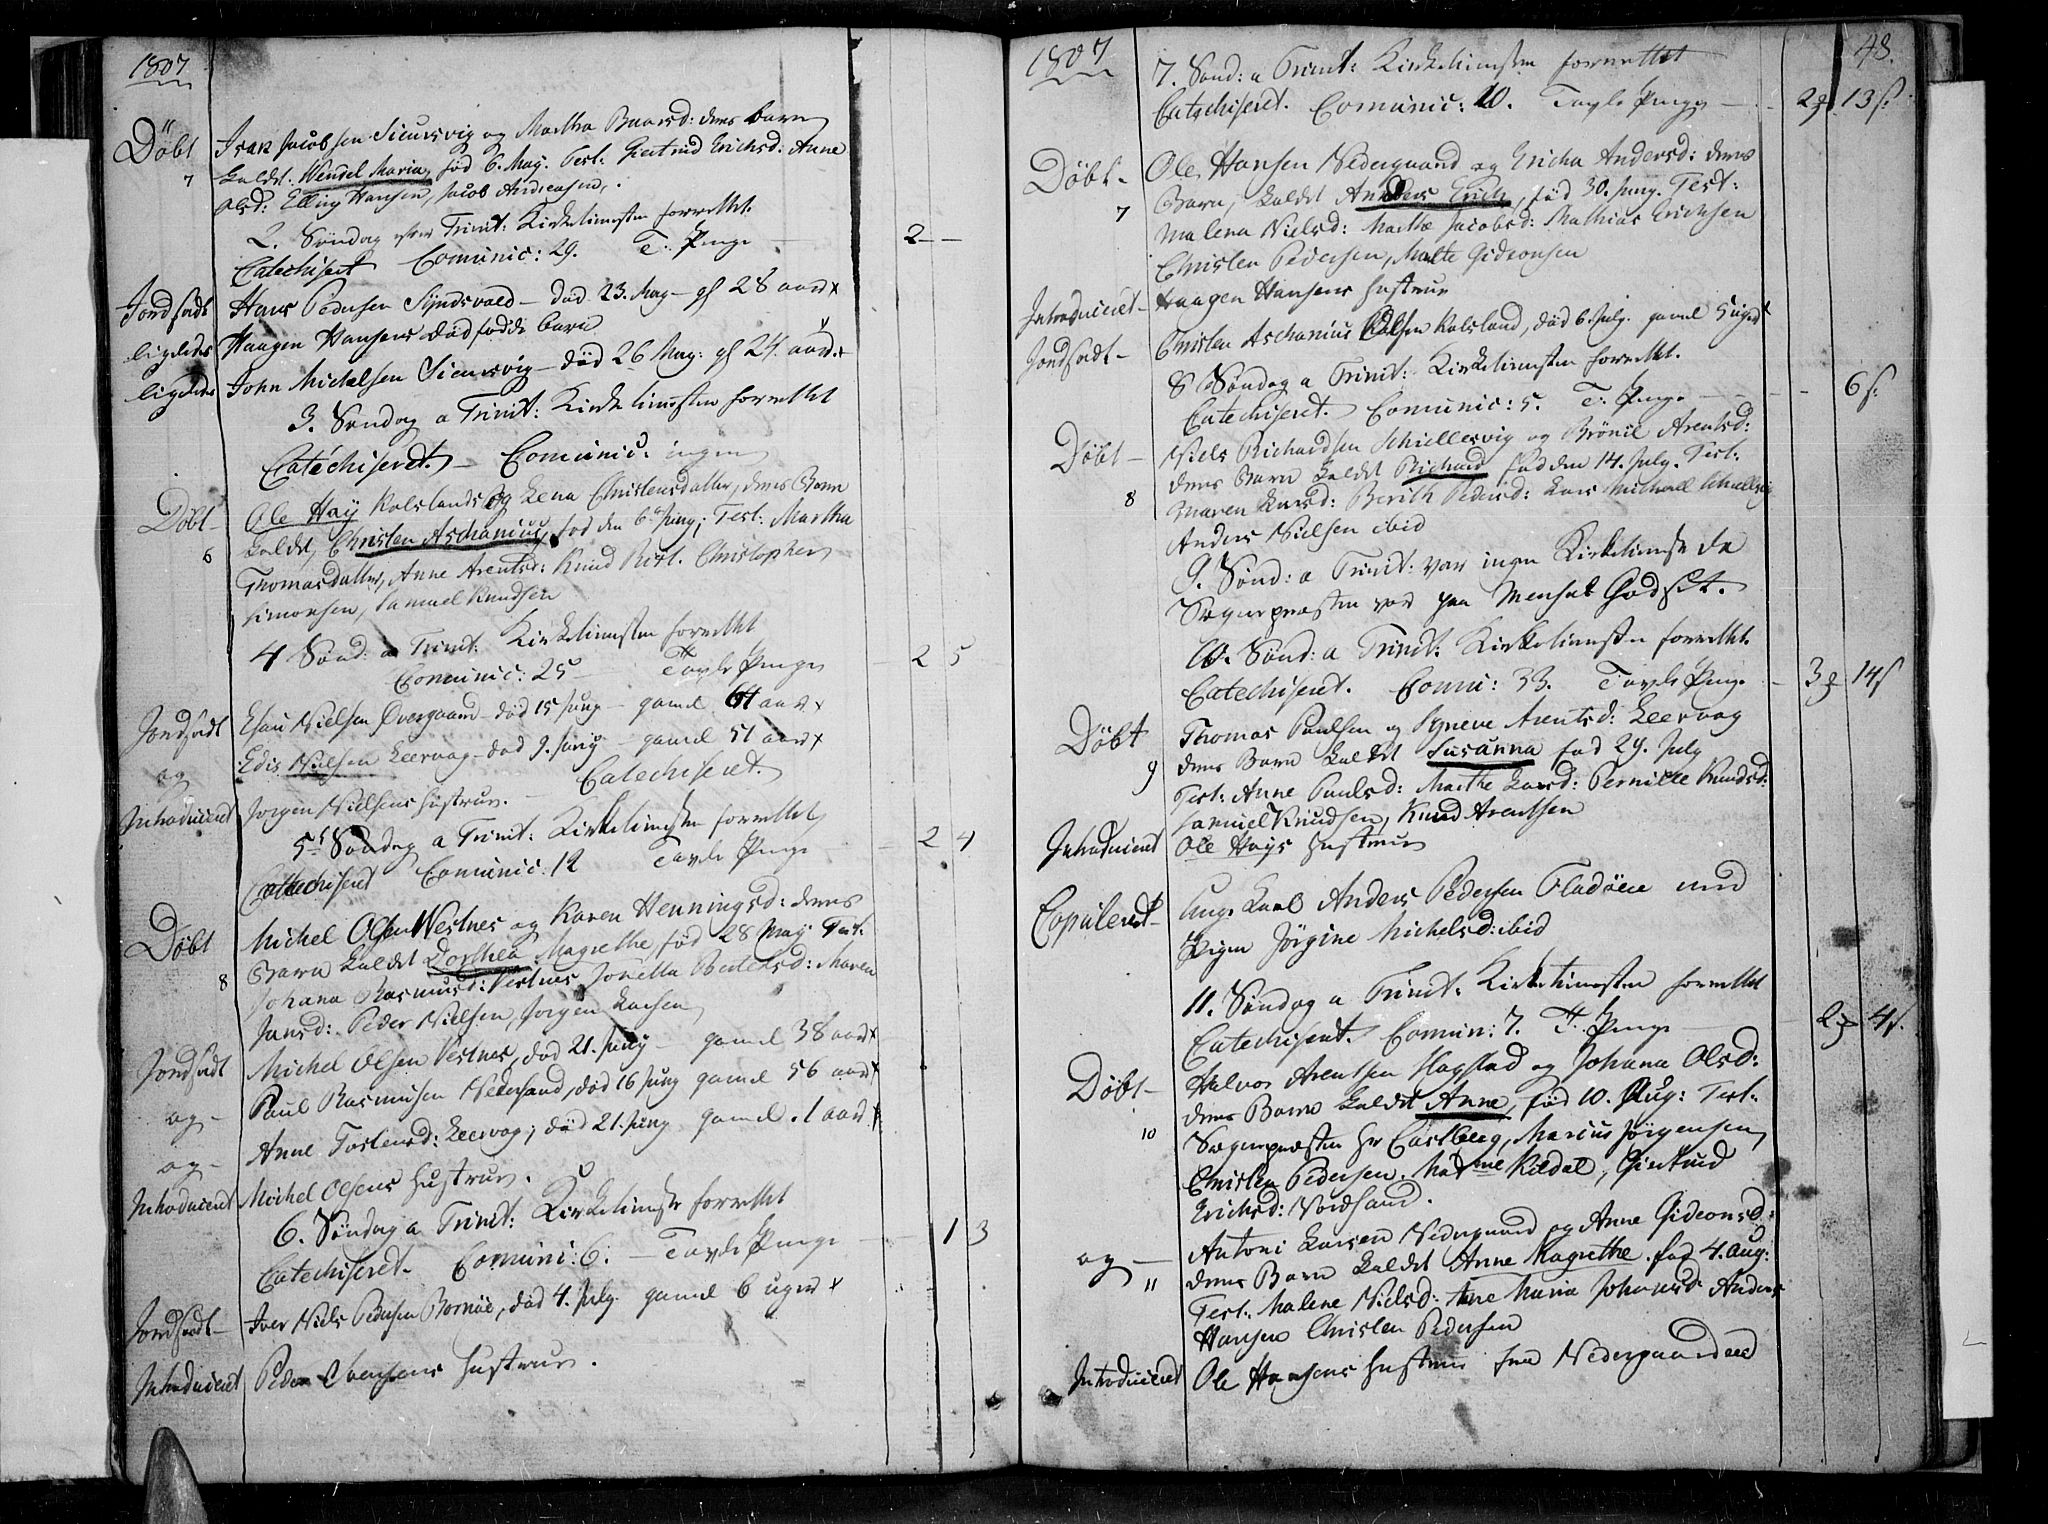 1807
Døbt Isak Jacobsen Sieursvig og Martha Baarsd: deres Barn
7 kaldt Wendel Maria, fød 6. May. Test: Giertrud Erichsd: Anne
Olsd: Elling Hansen, Jacob Andreasen,
2. Søndag efter Trinit: Kirketienesten forrettet.
Catechiseret Comunic: 29. T. Penge — 2 —
Jordfæstet Hans Pedersen Syndsvold — død 23. May — gl 28 aar x
ligeledes Haagen Hansens dødfødde Barn
ligeledes John Michelsen Sieursvig — død 26 May: gl 24. aar x
3. Søndag a Trinit: Kirketienesten forrettet
Catechiseret. — Comunic: ingen
Døbt Ole Høy Kolsland og Lena Christensdatter, deres Barn
6 kaldt, Christen Aschanius, fød den 6te Juny; Test: Martha
Thomasdatter, Anne Arentsd: Knud Christopher
Simonsen, Samuel Knudsen
4 Sønd: a Trinit: Kirketienesten forrettet
Comunic: 25 — Tavle Penge — 2 5
Jordfæstet Esau Nielsen Øvergaard — død 15 Juny — gamel 64 aar x
og Edis Nielsen Leervog — død 9. Juny — gamel 51 aar x
Catechiseret.
Introduceret Jørgen Nielsens Hustrue. —
5te Søndag a Trinit: Kirketienesten forrettet
Catechiseret Comunic: 12 Tavle Penge — 2 4
Døbt Michel Olsen Westnes og Karen Henningsd: deres
8 Barn kaldt Dorthea Magrethe fød 28 May Test:
Johana Rasmusd: Vestnes, Jonetta Bertelsd: Maren
Jansd: Peder Nielsen, Jørgen Larsen,
Jordfæstet Michel Olsen Vestnes, død 21. Juny — gamel 38 aar x
og — Paul Rasmusen Nedersand, død 16 Juny gamel 56 aar x
og — Anne Tostensd: Leervog; død 21. Juny gamel 1 aar x
Introduceret Michel Olsens Hustrue.
6. Søndag a Trinit: Kirketieneste forrettet
Catechiseret. Comuni: 6: — Tavle Penge — 1 3
Jordfæstet — Iver Niels Pedersen Bornøe, død 4. July. gamel 6 uger x
Introduceret Peder Iversens Hustrue.
1807 48.
7. Sønd: a Trinit: Kirketienesten forrettet
Catechiseret. Comunic: 10. Tavle Penge — 2 13 s.
Døbt — Ole Hansen Nedergaard og Ericha Andersd: deres
7 Barn, kaldt Anders Erich, fød 30. Juny. Test:
Malena Nielsd: Marthe Jacobsd: Mathias Erichsen
Christen Pedersen, Malte Gideonsen
Introduceret — Haagen Hansens Hustrue
Jordfæstet — Christen Aschanius Olsen Kolsland, død 6. July. gamel 5 uger x
8 Søndag a Trinit: Kirketienesten forrettet.
Catechiseret. Comunic: 5. T. Penge — 6 s.
Døbt — Niels Richardsen Schiellesvig og Brønil Arentsd:
8 deres Barn kaldt Richard fød den 14. July. Test:
Maren Larsd: Berith Pedersd: Lars Michael Schiellesvig
Anders Nielsen ibid
9. Sønd: a Trinit: var ingen Kirketieneste da
Sognepræsten var paa Mensal Godset.
10. Sønd: a Trinit: Kirketienesten forrettet.
Catechiseret. Comu: 33. Tavle Penge — 3 14 s
Døbt Thomas Paulsen og Synneve Arentsd: Leervog
9 deres Barn kaldt Susanna fød 29. July
Test: Anne Paulsd: Marthe Larsd: Pernille Knudsd:
Samuel Knudsen, Knud Arentsen
Introduceret Ole Høys Hustrue
Copuleret — Unge Karl Anders Pedersen Fladøen med
Pigen Jørgine Michelsd: ibid
11. Søndag a Trinit: Kirketienesten forrettet
Catechiseret. Comun: 7. T. Penge 2 4 s.
Døbt — Halvor Arentsen Hagstad og Johana Olsd:
10 deres Barn kaldt Anne, fød 10. Aug: Test:
Sognepræsten Hr Castberg, Marcus Jørgensen,
Christen Pedersen. Madme Kildal, Giertrud
Erichsd: Nordsand.
og — Antoni Larsen Nedergaard og Anne Gideonsd:
11 deres Barn kaldt Anne Magrethe. fød 4. Aug:
Test: Malene Nielsd: Ane Maria Johansd: Anders
Hansen Christen Pedersen
Introduceret Ole Hansens Hustrue fra Nedergaarden